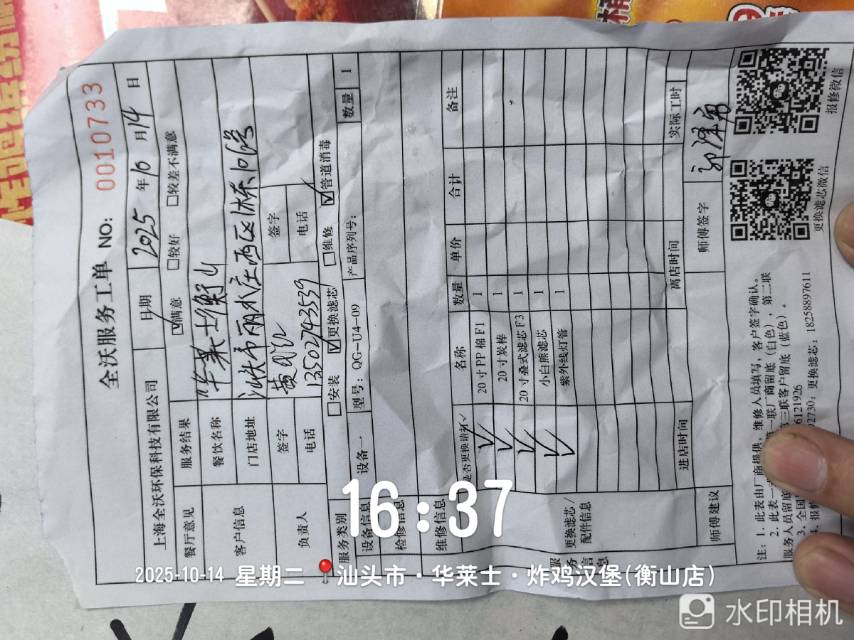 全沃服务工单 NO: 0010733
上海全沃环保科技有限公司 日期 2025年10月14日
餐厅意见 服务结果 ☑满意 □较好 □较差不满意
客户信息 餐饮名称 华莱士衡山
门店地址 汕头市丽水庄西区1栋10号
负责人 签字 签字
电话 13502743539 电话
服务类别 □安装 ☑更换滤芯 □维修 ☑管道消毒
设备信息 设备一 型号: QG-U4-09 产品序列号: 数量 1
检修信息
维修信息
服务信息 更换滤芯/配件信息 是否更换请划√ 名称 数量 单价 合计 备注
√ 20寸PP棉F1 1
√ 20寸炭棒 1
√ 20寸叠式滤芯F3 1
√ 小白熊滤芯 1
紫外线灯管 1
进店时间 离店时间 实际工时
师傅建议 师傅签字
注: 1. 此表由厂商提供, 维修人员填写, 客户签字确认。
2. 此表一 第一联厂商留底(白色), 第二联
服务人员留底 三联客户留底(蓝色)。
3. 全国 6121926
4. 报修 02730; 更换滤芯: 18258897611
更换滤芯微信
报修微信
16:37
2025-10-14 星期二 汕头市·华莱士·炸鸡汉堡(衡山店)
水印相机